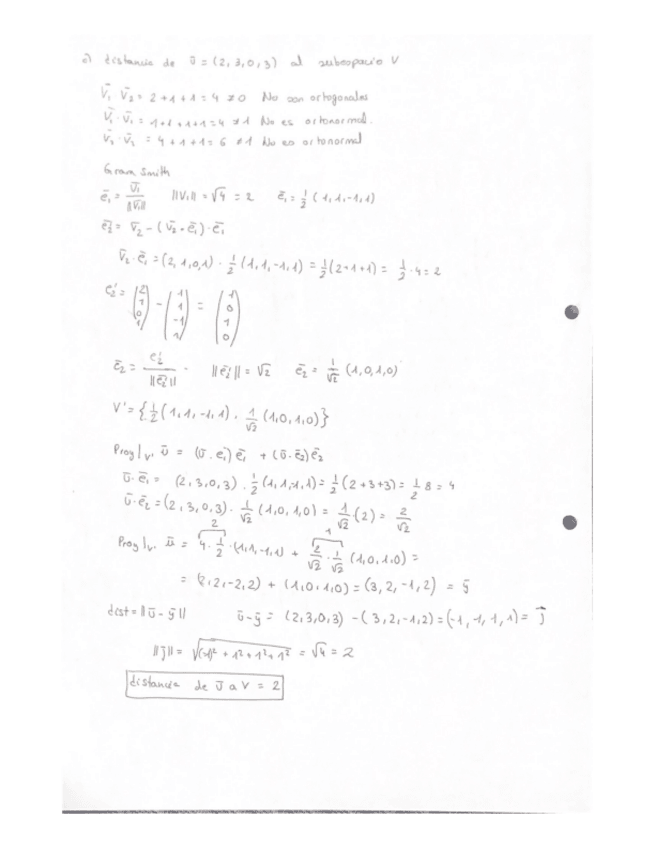 c) distancia de ū = (2,3,0,3) al subespacio V
v̄₁ v̄₂ = 2+1+1 = 4 ≠ 0 No son ortogonales
v̄₁ · v̄₁ = 1+1+1+1 = 4 ≠ 1 No es ortonormal.
v̄₂ · v̄₂ = 4+1+1 = 6 ≠ 1 No es ortonormal
Gram Smith
ē₁ = v̄₁/||v̄₁|| ||v₁|| = √4 = 2 ē₁ = 1/2 (1,1,-1,1)
ē₂' = v̄₂ - (v̄₂ · ē₁) · ē₁
v̄₂ · ē₁ = (2,1,0,1) · 1/2 (1,1,-1,1) = 1/2 (2+1+1) = 1/2 · 4 = 2
e₂' = (2 1 0 1) - (1 1 -1 1) = (1 0 1 0)
ē₂ = e₂'/||ē₂'|| · ||ē₂'|| = √2 ē₂ = 1/√2 (1,0,1,0)
V' = {1/2 (1,1,-1,1), 1/√2 (1,0,1,0)}
Proy|v, ū = (ū · ē₁) ē₁ + (ū · ē₂) ē₂
ū · ē₁ = (2,3,0,3) · 1/2 (1,1,-1,1) = 1/2 (2+3+3) = 1/2 8 = 4
ū · ē₂ = (2,3,0,3) · 1/√2 (1,0,1,0) = 1/√2 · (2) = 2/√2
2 1
Proy|v, ū = 4 · 1/2 · (1,1,-1,1) + 2/√2 · 1/√2 (1,0,1,0) =
= (2,2,-2,2) + (1,0,1,0) = (3,2,-1,2) = ȳ
dist = ||ū - ȳ|| ū - ȳ = (2,3,0,3) - (3,2,-1,2) = (-1,1,1,1) = j̄
||j̄|| = √((-1)² + 1² + 1² + 1²) = √4 = 2
distancia de ū a V = 2